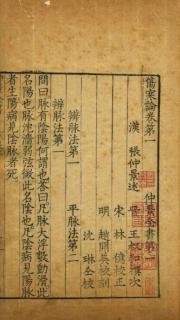 傷寒論卷第一
仲景全書第一
漢　張仲景述
王叔和撰次
宋　林億校正
明　趙開美校刻
沈琳仝校
辨脉法第一　平脉法第二
辨脉法第一
問曰脉有陰陽何謂也荅曰凡脉大浮數動滑此
名陽也脉沉濇弱弦微此名陰也凡陰病見陽脉
者生陽病見陰脉者死